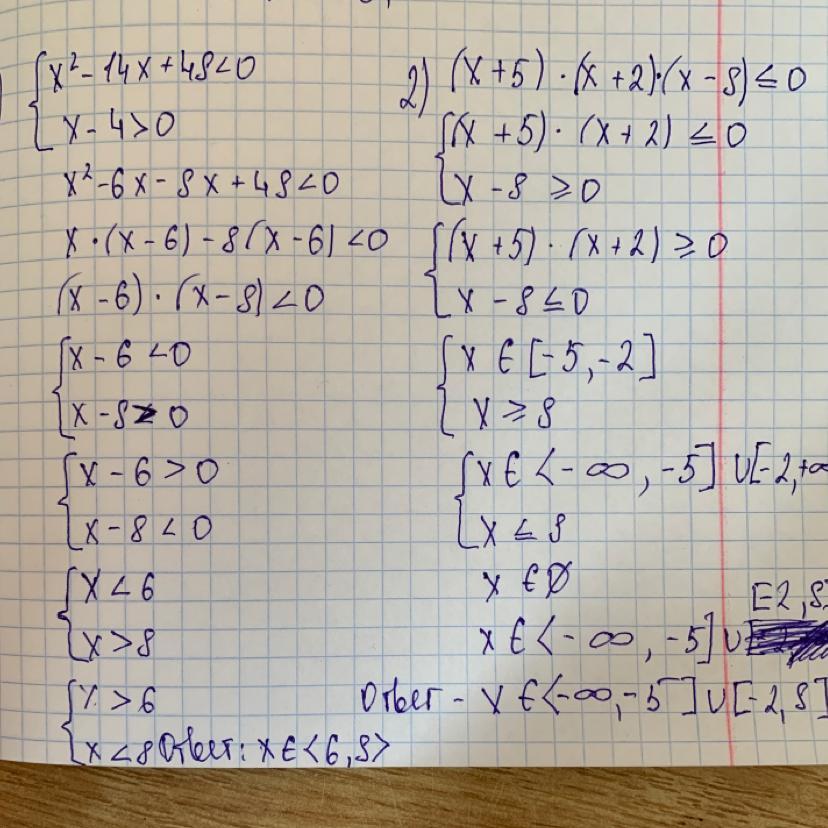 x² - 14x + 48 < 0
x - 4 > 0
x² - 6x - 8x + 48 < 0
x · (x - 6) - 8(x - 6) < 0
(x - 6) · (x - 8) < 0
x - 6 < 0
x - 8 > 0
x - 6 > 0
x - 8 < 0
x < 6
x > 8
x > 6
x < 8 Ответ: x ∈ <6, 8>
2) (x + 5) · (x + 2) · (x - 8) ≤ 0
(x + 5) · (x + 2) ≤ 0
x - 8 ≥ 0
(x + 5) · (x + 2) ≥ 0
x - 8 ≤ 0
x ∈ [-5, -2]
x ≥ 8
x ∈ <-∞, -5] ∪ [-2, +∞
x ≤ 8
x ∈ Ø
[-2, 8]
x ∈ <-∞, -5] ∪
Ответ - x ∈ <-∞, -5] ∪ [-2, 8]